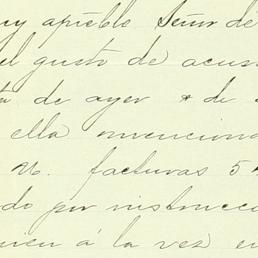 uy apreble Señor de
el gusto de acus
ta de ayer & de
ella mvenciona
M. facturas 5
do por instrucc
uien á la vez en